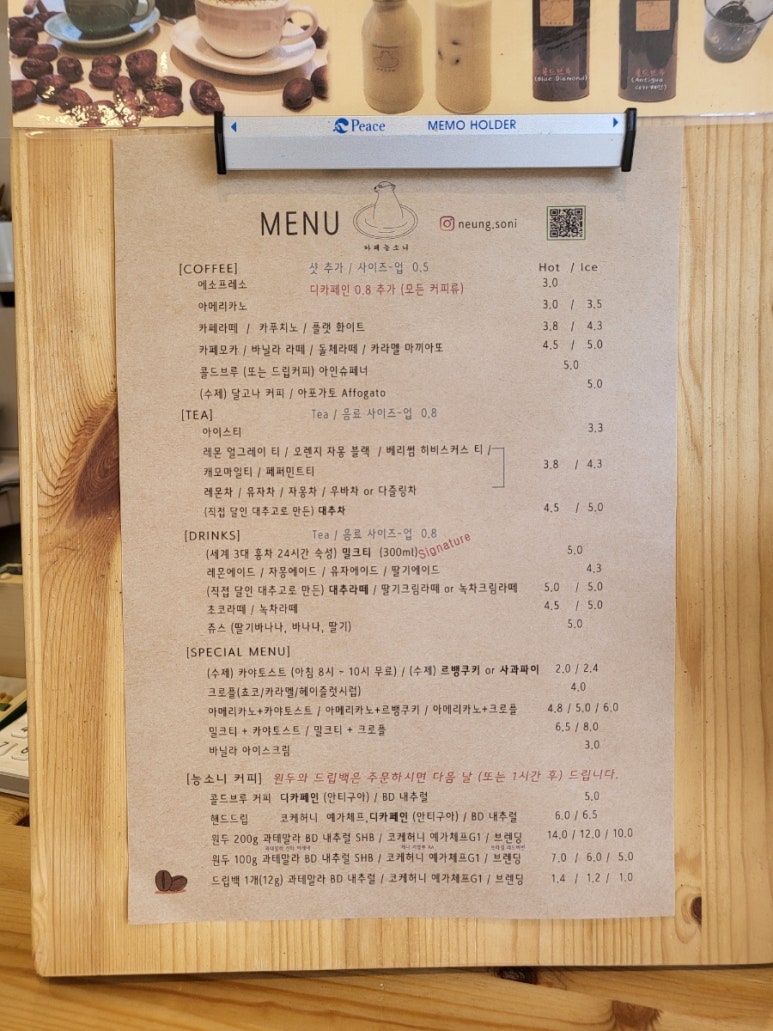 콜드브루
(Blue Diamond)
콜드브루
(Antigua
Peace MEMO HOLDER
MENU
카페능소니
neung.soni
[COFFEE] 샷 추가 / 사이즈-업 0.5 Hot / Ice
에소프레소 디카페인 0.8 추가 (모든 커피류) 3.0
아메리카노 3.0 / 3.5
카페라떼 / 카푸치노 / 플랫 화이트 3.8 / 4.3
카페모카 / 바닐라 라떼 / 돌체라떼 / 카라멜 마끼아또 4.5 / 5.0
콜드브루 (또는 드립커피) 아인슈페너 5.0
(수제) 달고나 커피 / 아포가토 Affogato 5.0
[TEA] Tea / 음료 사이즈-업 0.8
아이스티 3.3
레몬 얼그레이 티 / 오렌지 자몽 블랙 / 베리썸 히비스커스 티 /
캐모마일티 / 페퍼민트티 3.8 / 4.3
레몬차 / 유자차 / 자몽차 / 우바차 or 다즐링차
(직접 달인 대추고로 만든) 대추차 4.5 / 5.0
[DRINKS] Tea / 음료 사이즈-업 0.8
(세계 3대 홍차 24시간 숙성) 밀크티 (300ml) Signature 5.0
레몬에이드 / 자몽에이드 / 유자에이드 / 딸기에이드 4.3
(직접 달인 대추고로 만든) 대추라떼 / 딸기크림라떼 or 녹차크림라떼 5.0 / 5.0
초코라떼 / 녹차라떼 4.5 / 5.0
쥬스 (딸기바나나, 바나나, 딸기) 5.0
[SPECIAL MENU]
(수제) 카야토스트 (아침 8시 ~ 10시 무료) / (수제) 르뱅쿠키 or 사과파이 2.0 / 2.4
크로플(쵸코/카라멜/헤이즐럿시럽) 4.0
아메리카노+카야토스트 / 아메리카노+르뱅쿠키 / 아메리카노+크로플 4.8 / 5.0 / 6.0
밀크티 + 카야토스트 / 밀크티 + 크로플 6.5 / 8.0
바닐라 아이스크림 3.0
[능소니 커피] 원두와 드립백은 주문하시면 다음 날 (또는 1시간 후) 드립니다.
콜드브루 커피 디카페인 (안티구아) / BD 내추럴 5.0
핸드드립 코케허니 예가체프,디카페인 (안티구아) / BD 내추럴 6.0 / 6.5
원두 200g 과테말라 BD 내추럴 SHB / 코케허니 예가체프G1 / 브렌딩 14.0 / 12.0 / 10.0
원두 100g 과테말라 BD 내추럴 SHB / 코케허니 예가체프G1 / 브렌딩 7.0 / 6.0 / 5.0
드립백 1개(12g) 과테말라 BD 내추럴 / 코케허니 예가체프G1 / 브렌딩 1.4 / 1.2 / 1.0